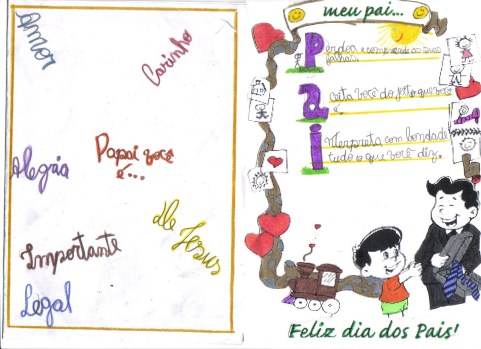 Amor
Carinho
Papai você
é...
Alegria
De Jesus
Importante
Legal
meu pai...
Perdoa e compreende as suas
falhas.
Aceita você do jeito que você
é.
Interpreta com bondade
tudo o que você diz.
Feliz dia dos Pais!